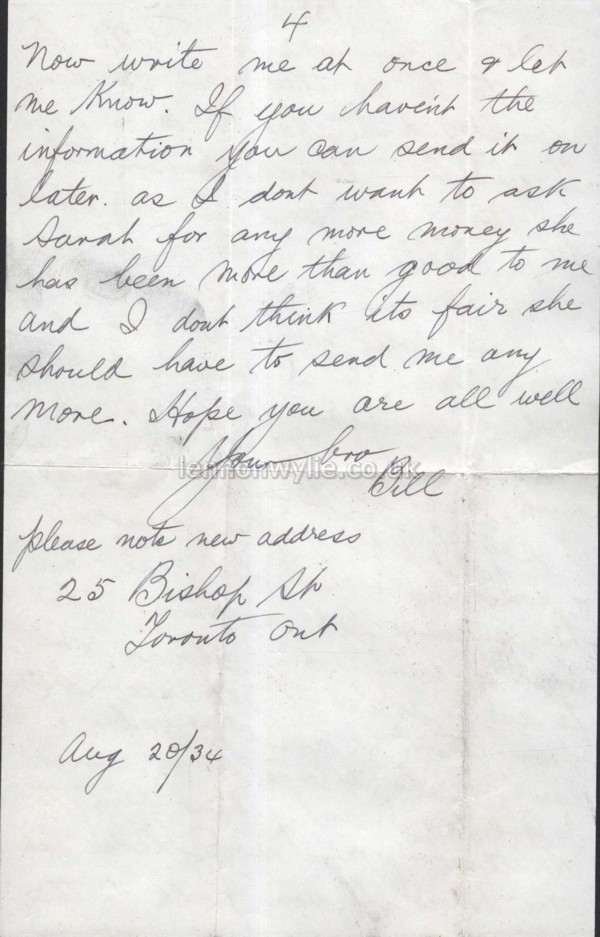 4
Now write me at once & let
me Know. If you haven't the
information you can send it on
later. as I dont want to ask
Sarah for any more money she
has been more than good to me
and I dont think its fair she
should have to send me any
more. Hope you are all well
Your bro
lennonwylie.co.uk
Bill
please note new address
25 Bishop St
Toronto Ont
Aug 20/34